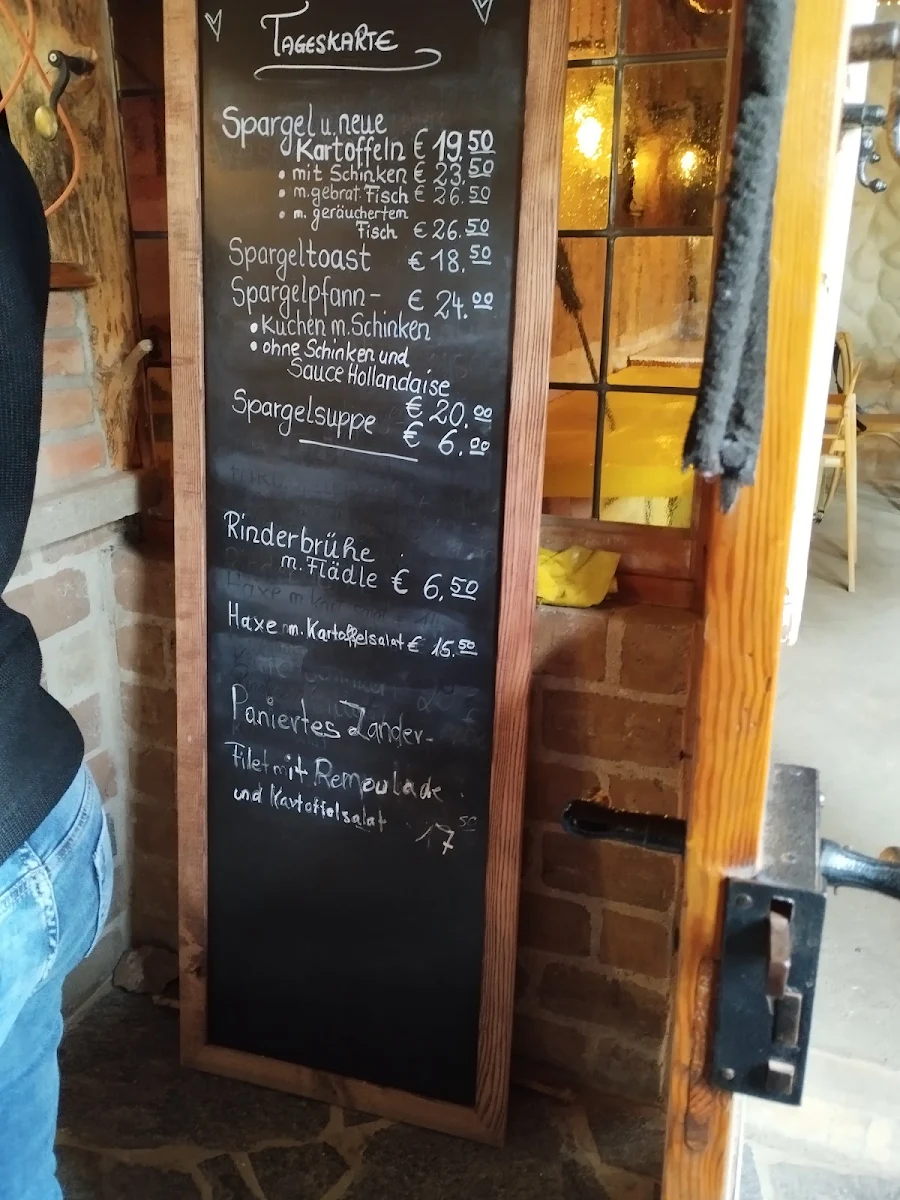 TAGESKARTE
Spargel u. neue
Kartoffeln € 19.50
• mit Schinken € 23.50
• m. gebrat. Fisch € 26.50
• m. geräuchertem
Fisch € 26.50
Spargeltoast € 18.50
Spargelpfann- € 24.00
• Kuchen m. Schinken
• ohne Schinken und
Sauce Hollandaise
€ 20.00
Spargelsuppe € 6.00
Rinderbrühe
m. Flädle € 6,50
Haxe m. Kartoffelsalat € 15.50
Paniertes Zander-
Filet mit Remoulade
und Kartoffelsalat
17 50